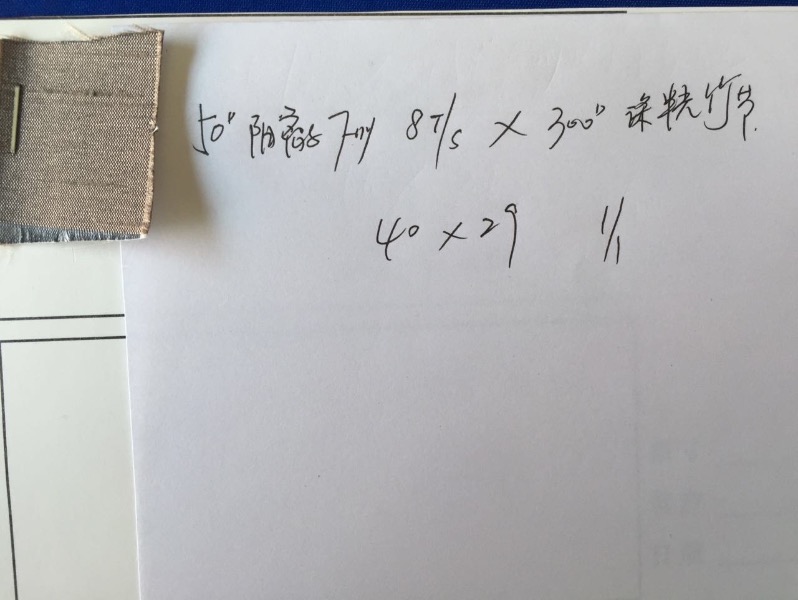 50" 阳离子 FDY 8T/S × 300" 涤半光竹节
40 × 29 1/1